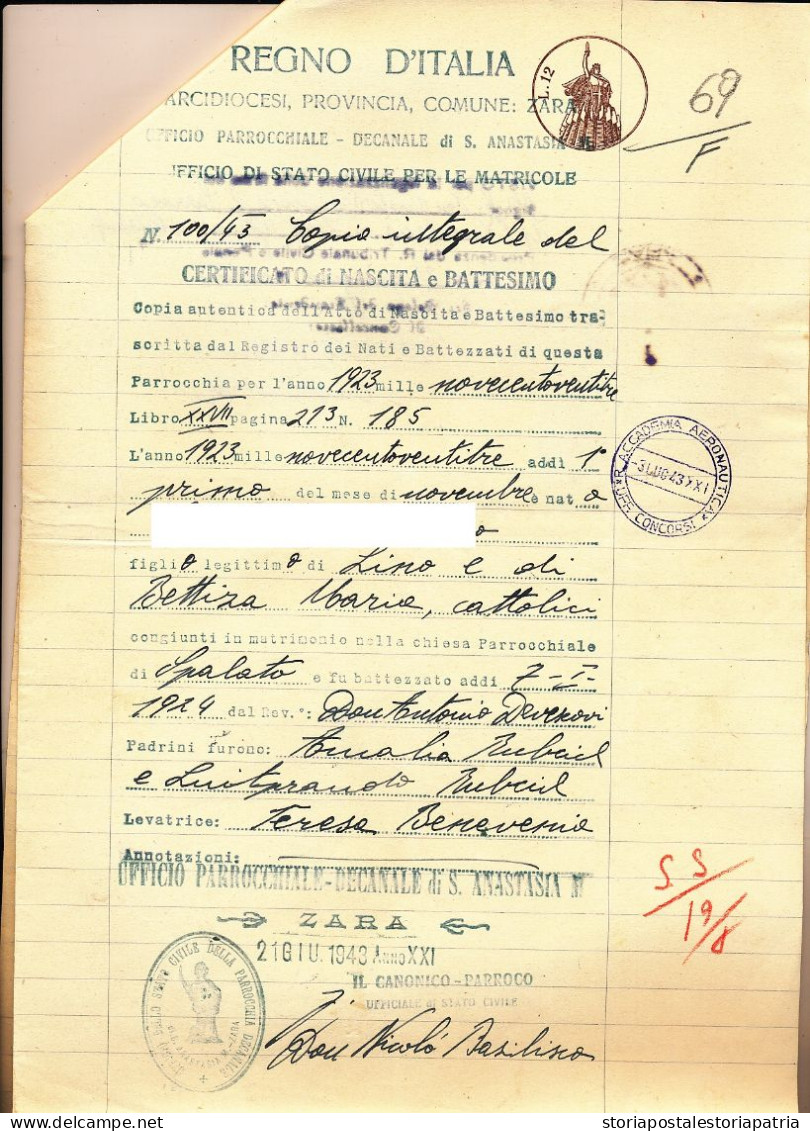 REGNO D'ITALIA
L. 12
69/F
ARCIDIOCESI, PROVINCIA, COMUNE: ZARA
UFFICIO PARROCCHIALE - DECANALE di S. ANASTASIA M
UFFICIO DI STATO CIVILE PER LE MATRICOLE
N. 100/43 Copia integrale del
CERTIFICATO di NASCITA e BATTESIMO
Copia autentica dell'Atto di Nascita e Battesimo tra-
scritta dal Registro dei Nati e Battezzati di questa
Parrocchia per l'anno 1923 mille novecentoventitre
Libro XXVII pagina 213 N. 185
L'anno 1923 mille novecentoventitre addì 1º
primo del mese di novembre è nato
o
figlio legittimo di Lino e di
Bettiza Maria, cattolici
congiunti in matrimonio nella chiesa Parrocchiale
di Spalato e fu battezzato addì 7-I-
1924 dal Rev.º: Don Antonio
Padrini furono: Amalia
e Luitprando
Levatrice: Teresa Benevenia
Annotazioni:
UFFICIO PARROCCHIALE-DECANALE di S. ANASTASIA M
ZARA
21 GIU. 1943 Anno XXI
IL CANONICO-PARROCO
UFFICIALE di STATO CIVILE
Don Nicolò Basilisco
R. ACCADEMIA AERONAUTICA
3 LUG 43 XXI
UFF. CONCORSI
SS
19/8
STATO CIVILE DELLA PARROCCHIA DECANALE
storiapostalestoriapatria